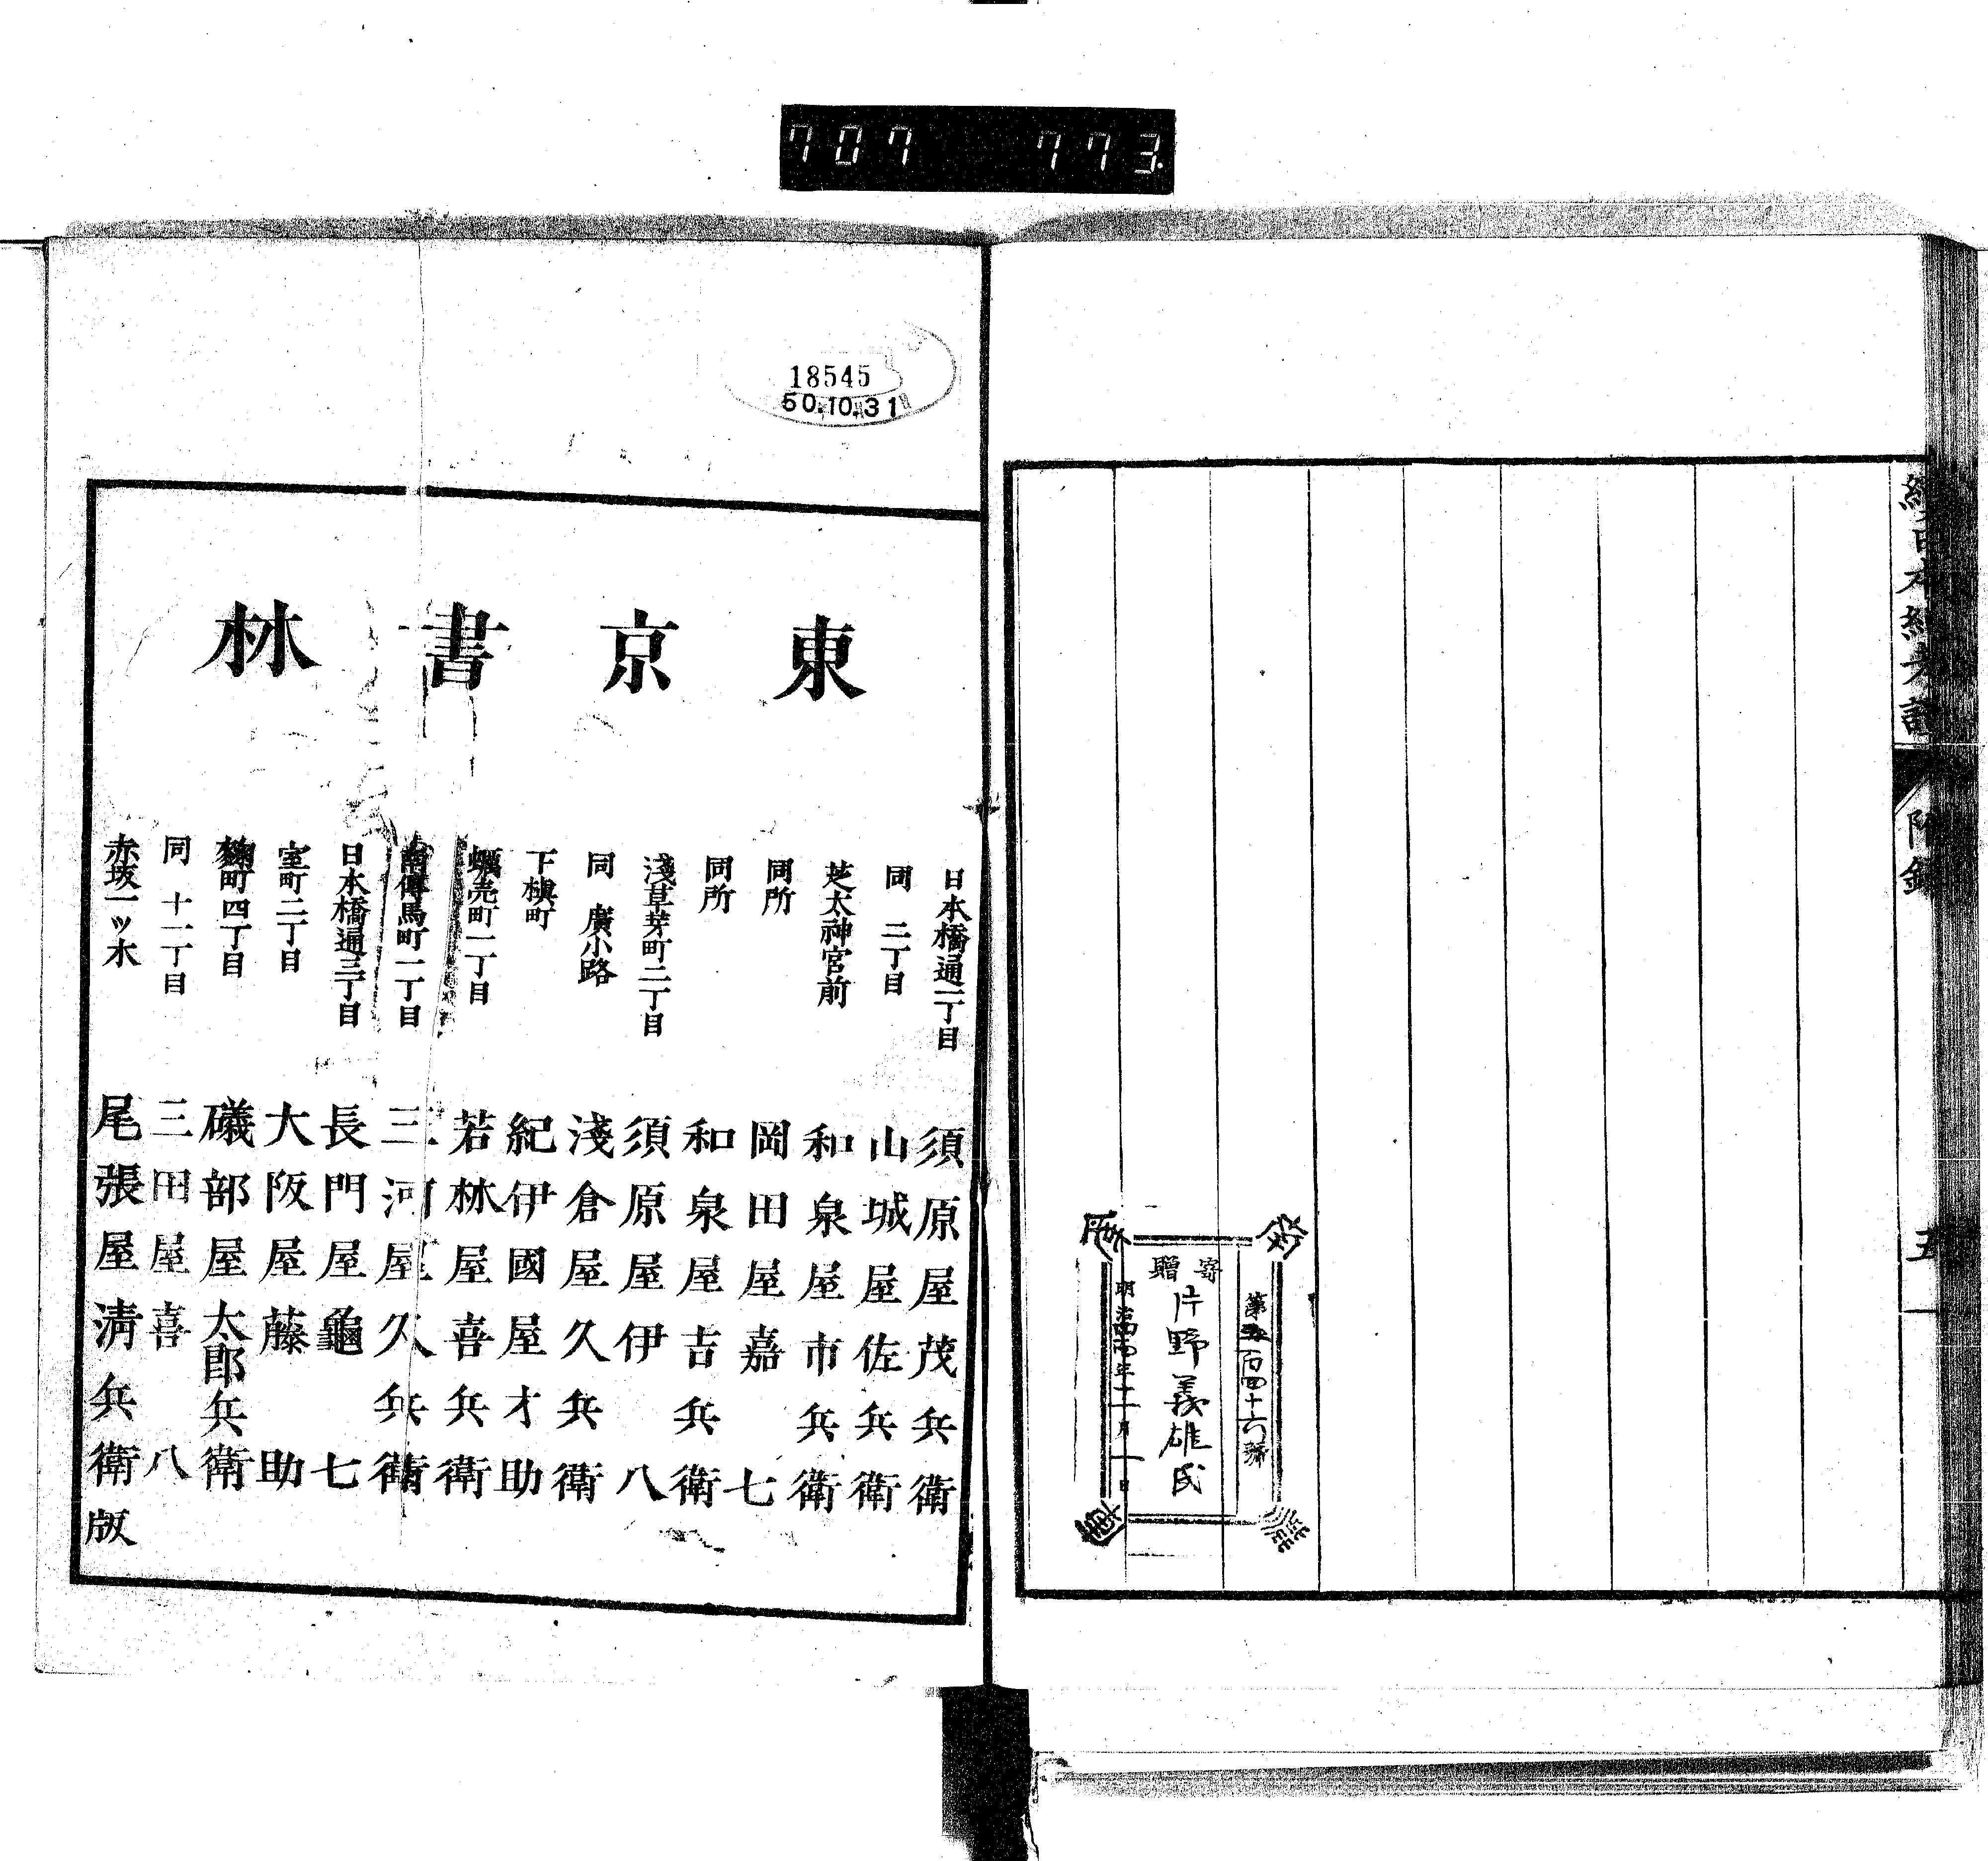 707 773
附錄
五一
寄贈
第
百四十六號
片野義雄氏
明治四
年十一月一日
18545
50.10.31
東京書林
日本橋通一丁目 須原屋茂兵衛
同 二丁目 山城屋佐兵衛
芝太神宮前 和泉屋市兵衛
同所 岡田屋嘉七
同所 和泉屋吉兵衛
淺草茅町二丁目 須原屋伊八
同 廣小路 淺倉屋久兵衛
下槇町 紀伊國屋才助
蠣売町一丁目 若林屋喜兵衛
南傳馬町一丁目 三河屋久兵衛
日本橋通三丁目 長門屋龜七
室町二丁目 大阪屋藤助
麴町四丁目 礒部屋太郎兵衛
同 十一丁目 三田屋喜八
赤坂一ッ木 尾張屋淸兵衛版